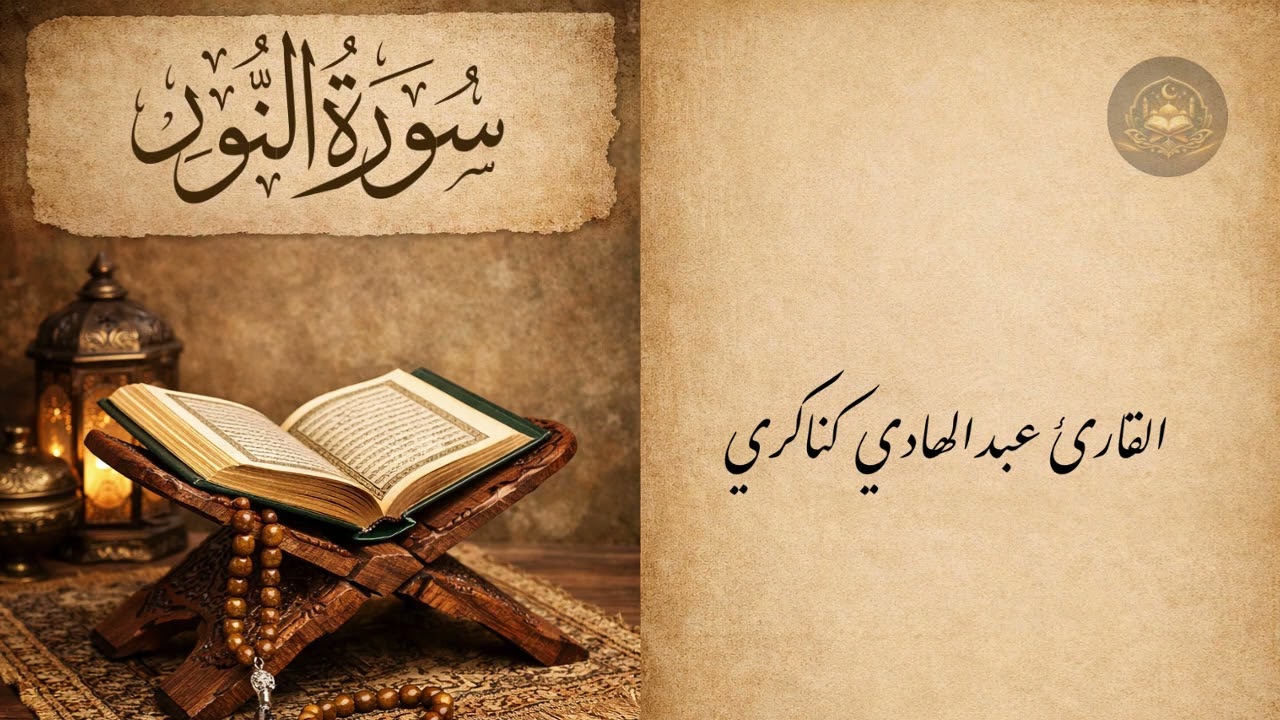 سُورَةُ النُّورِ
القارئ عبد الهادي كناكري